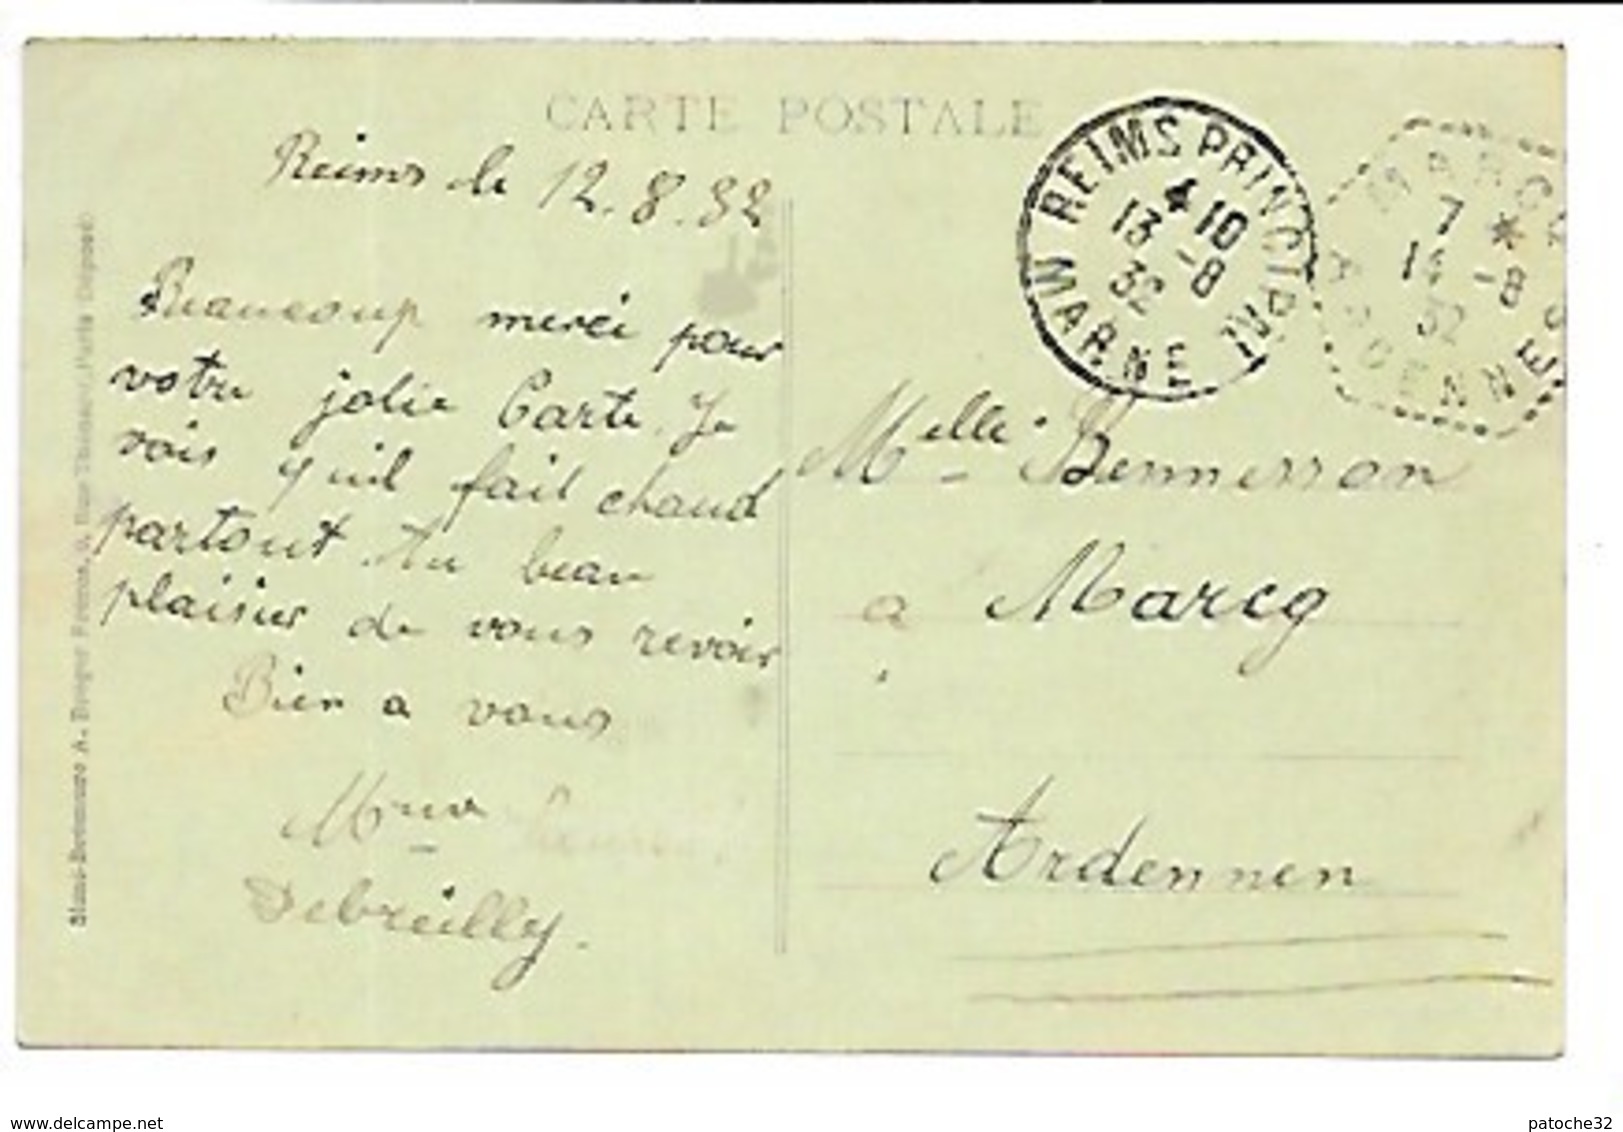 CARTE POSTALE
Reims le 12.8.32
Beaucoup merci pour
votre jolie Carte. Je
vois qu'il fait chaud
partout. Au beau
plaisir de vous revoir
Bien a vous
Mme
Debreuilly.
REIMS PRINCIPAL
4 10
13 -8
32
MARNE
MARCQ
7 *
14 -8
32
ARDENNES
Melle.
a Marcq
Ardennen
www.delcampe.net
patoche32